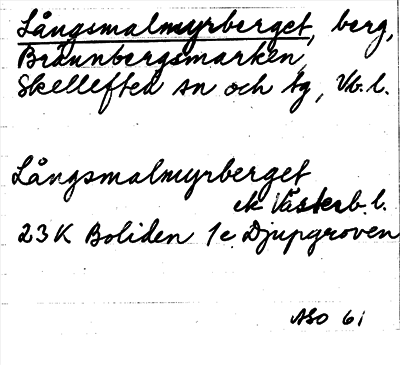 Långsmalmyrberget, berg,
Brännbergsmarken,
Skellefteå sn och tg, Vb. l.
Långsmalmyrberget
ek Västerb. l.
23 K Boliden 1c Djupgroven
ASO 61